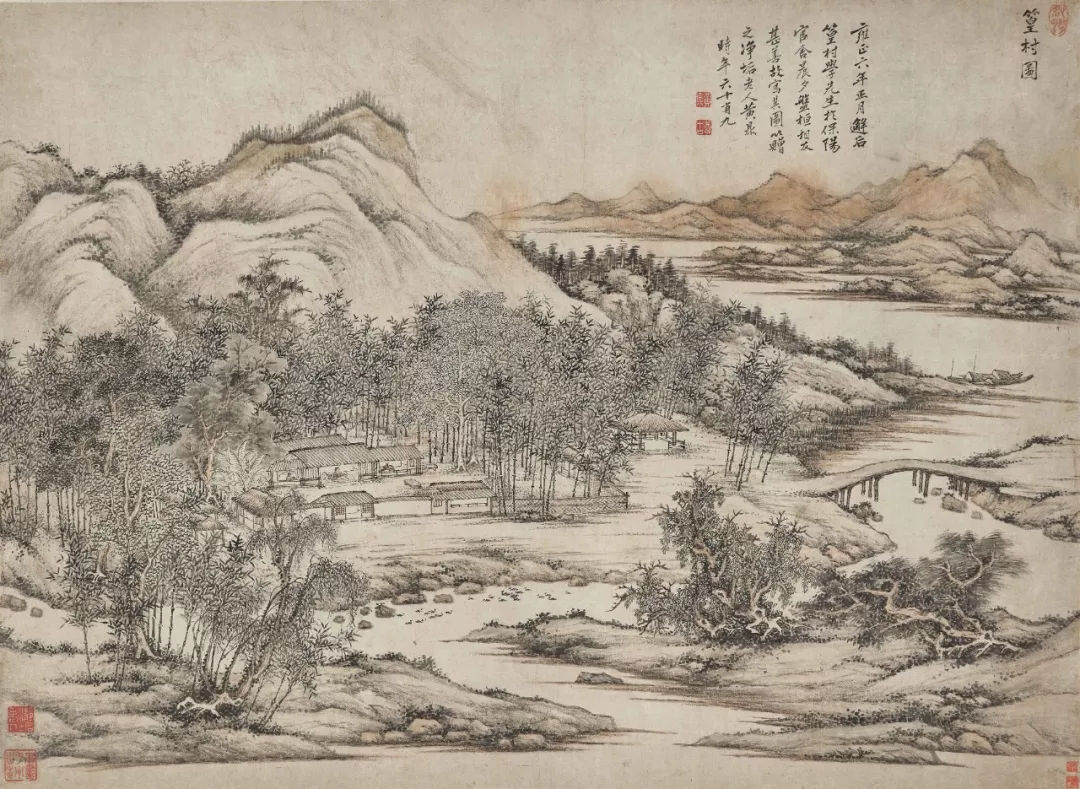 篁村圖
雍正六年正月解后
篁村學先生於保陽
官舍晨夕盤桓相友
甚善故寫其圖以贈
之淨垢老人黃鼎
時年六十有九